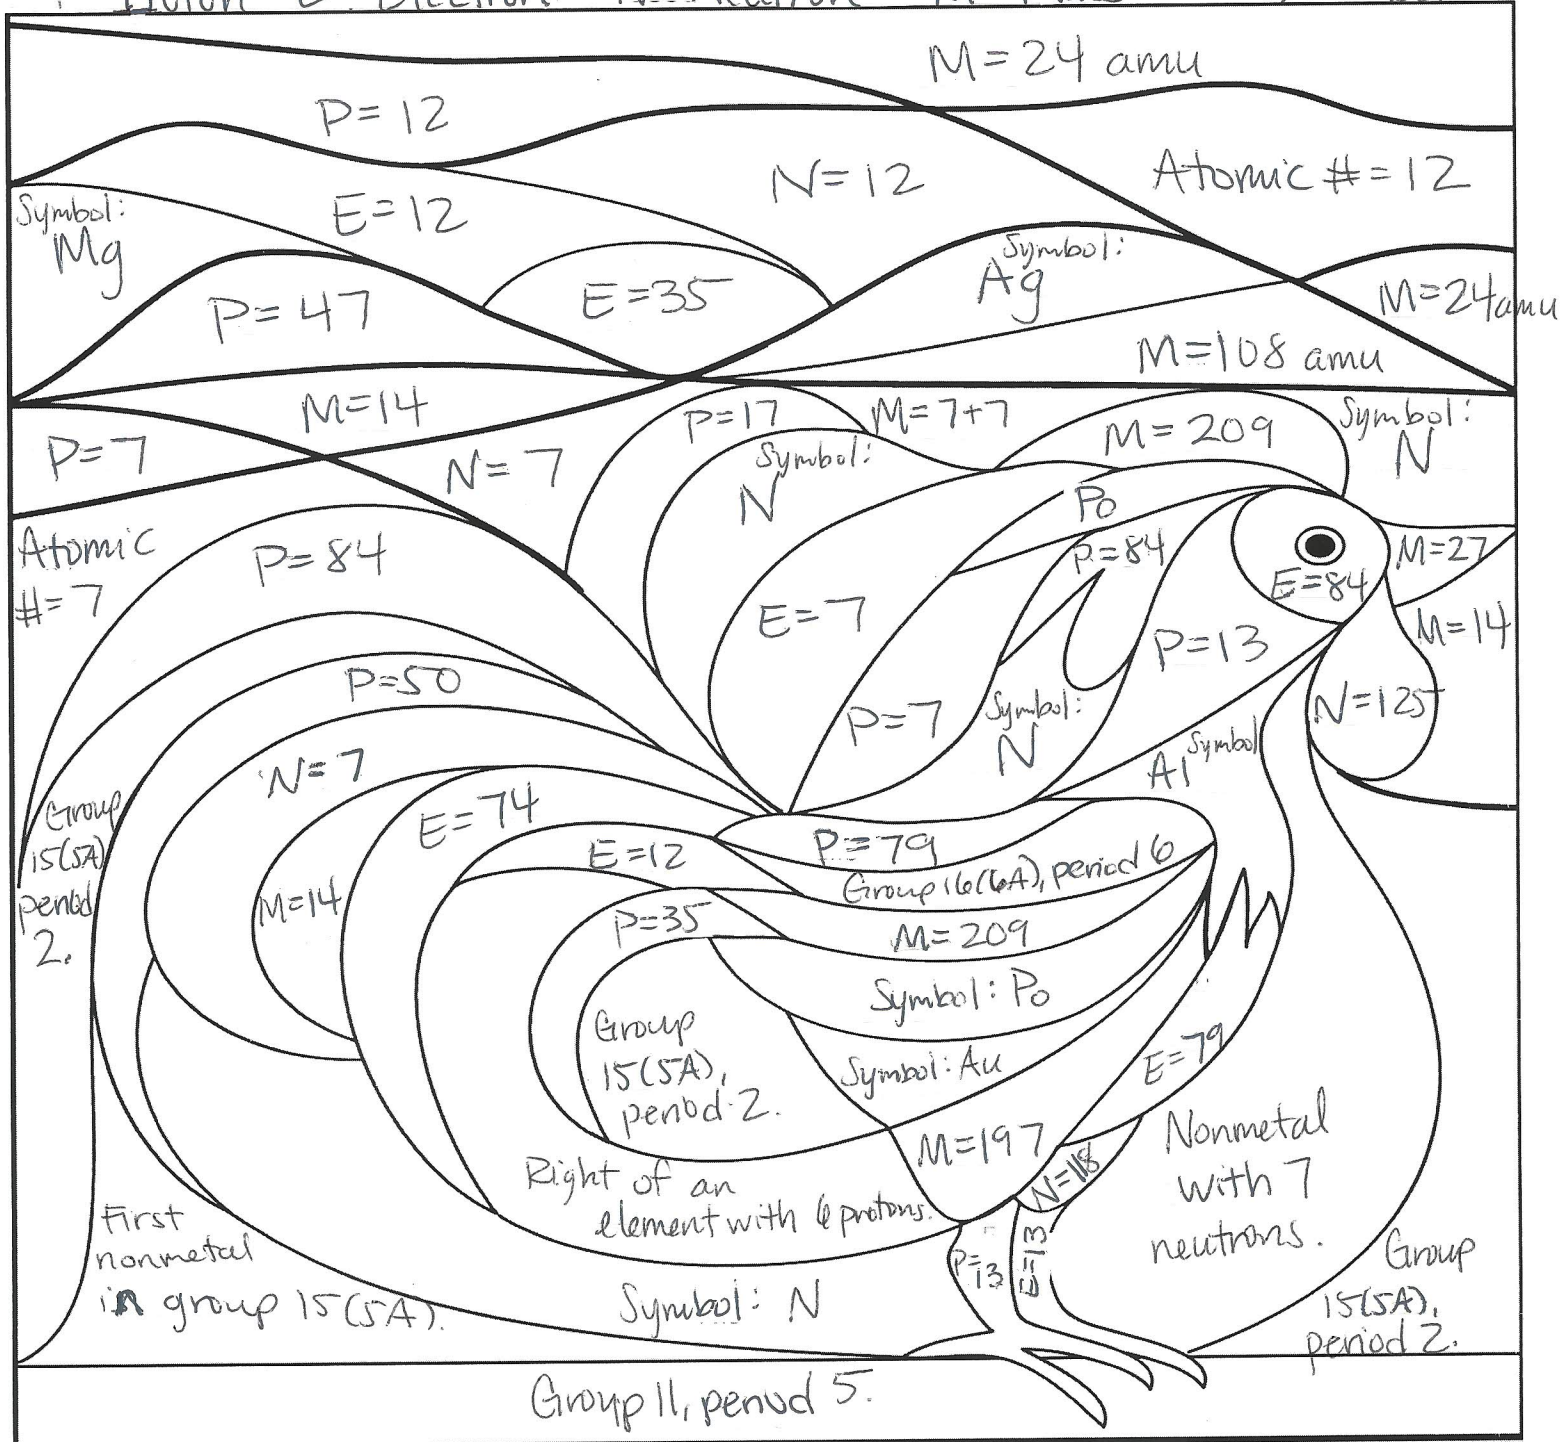 M=24 amu
P=12
N=12
Atomic #=12
Symbol:
Mg
E=12
Symbol:
Ag
P=47
E=35
M=24amu
M=108 amu
M=14
P=17
M=7+7
M=209
Symbol:
N
P=7
N=7
Symbol:
N
Po
Atomic
#=7
P=84
P=84
M=27
E=84
E=7
M=14
P=13
P=50
P=7
Symbol:
N
N=125
Symbol
Al
N=7
Group
15(5A)
period
2.
E=74
P=79
E=12
Group 16(6A), period 6
M=14
P=35
M=209
Symbol: Po
Group
15(5A),
period 2.
Symbol: Au
E=79
M=197
N=118
Nonmetal
with 7
neutrons.
Right of an
element with 6 protons.
First
nonmetal
in group 15(5A).
P=
13
E=13
Symbol: N
Group
15(5A),
period 2.
Group 11, period 5.